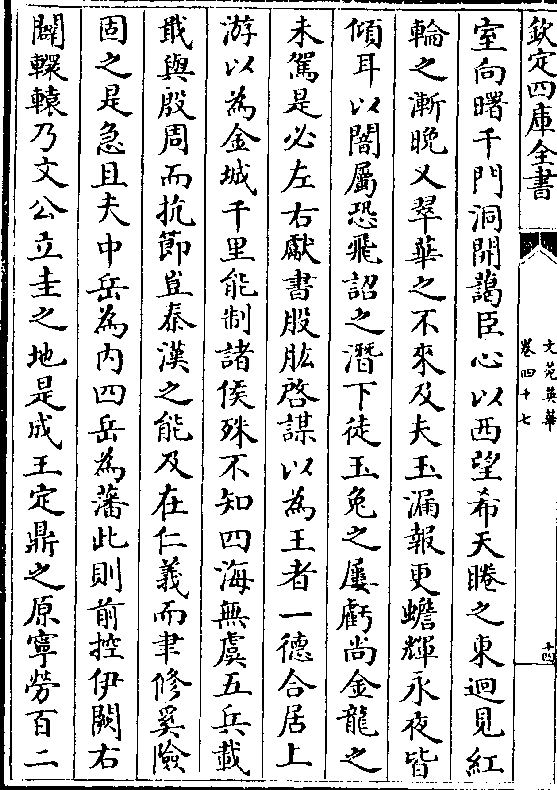 欽定四庫全書
文苑英華
卷四十七
十四
室向曙千門洞開藹臣心以西望希天睠之東迴見紅
輪之漸晚乂翠華之不來及夫玉漏報更蟾輝永夜皆
傾耳以闇屬恐飛詔之潛下徒玉兔之屢虧尚金龍之
未駕是必左右獻書股肱啓謀以為王者一德合居上
游以為金城千里能制諸侯殊不知四海無虞五兵載
戢與殷周而抗節豈秦漢之能及在仁義而聿修奚險
固之是急且夫中岳為內四岳為藩此則前控伊闕右
闢轘轅乃文公立圭之地是成王定鼎之原寧勞百二